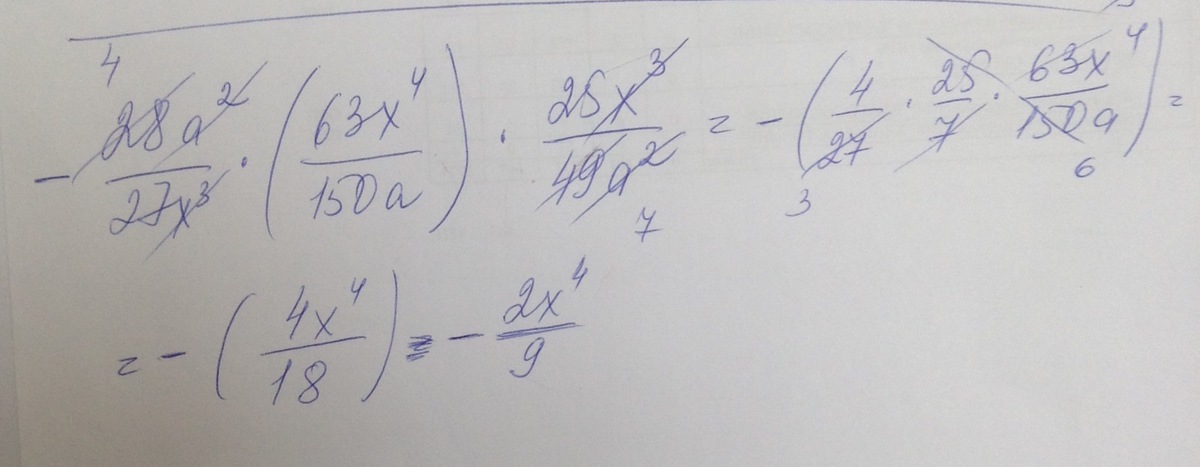 4
- 28a²/27x³ · (63x⁴/150a) · 25x³/49a² = - (4/27 · 25/7 · 63x⁴/150a) =
7 3 6
= - (4x⁴/18) = - 2x⁴/9